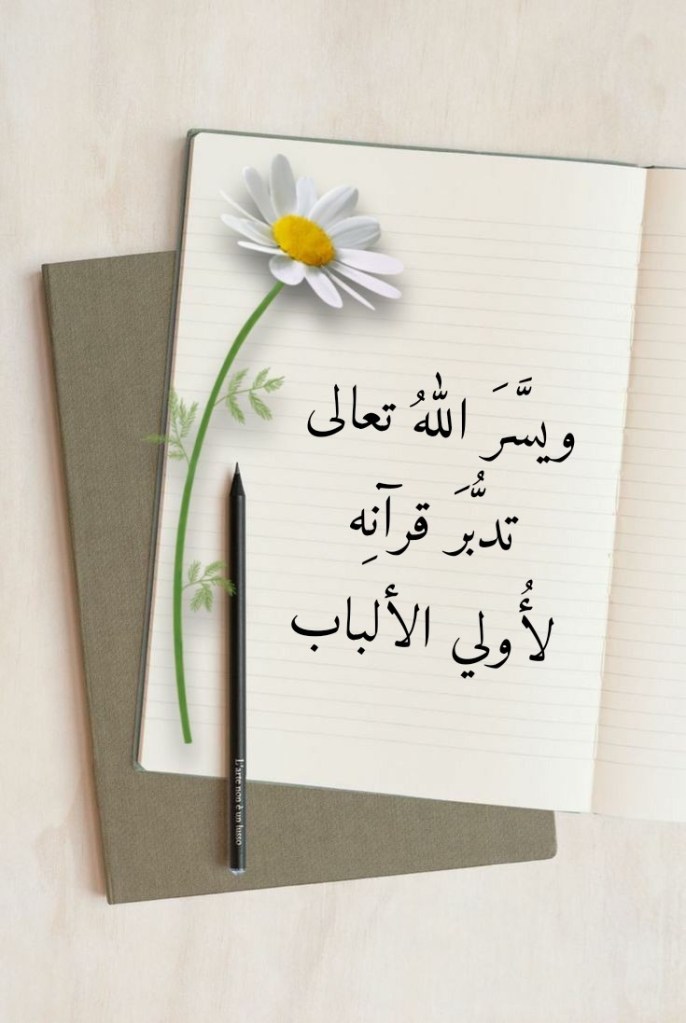 ويسَّرَ اللهُ تعالى
تدبُّرَ قرآنِه
لأُولي الألباب
L'arte non è un lusso